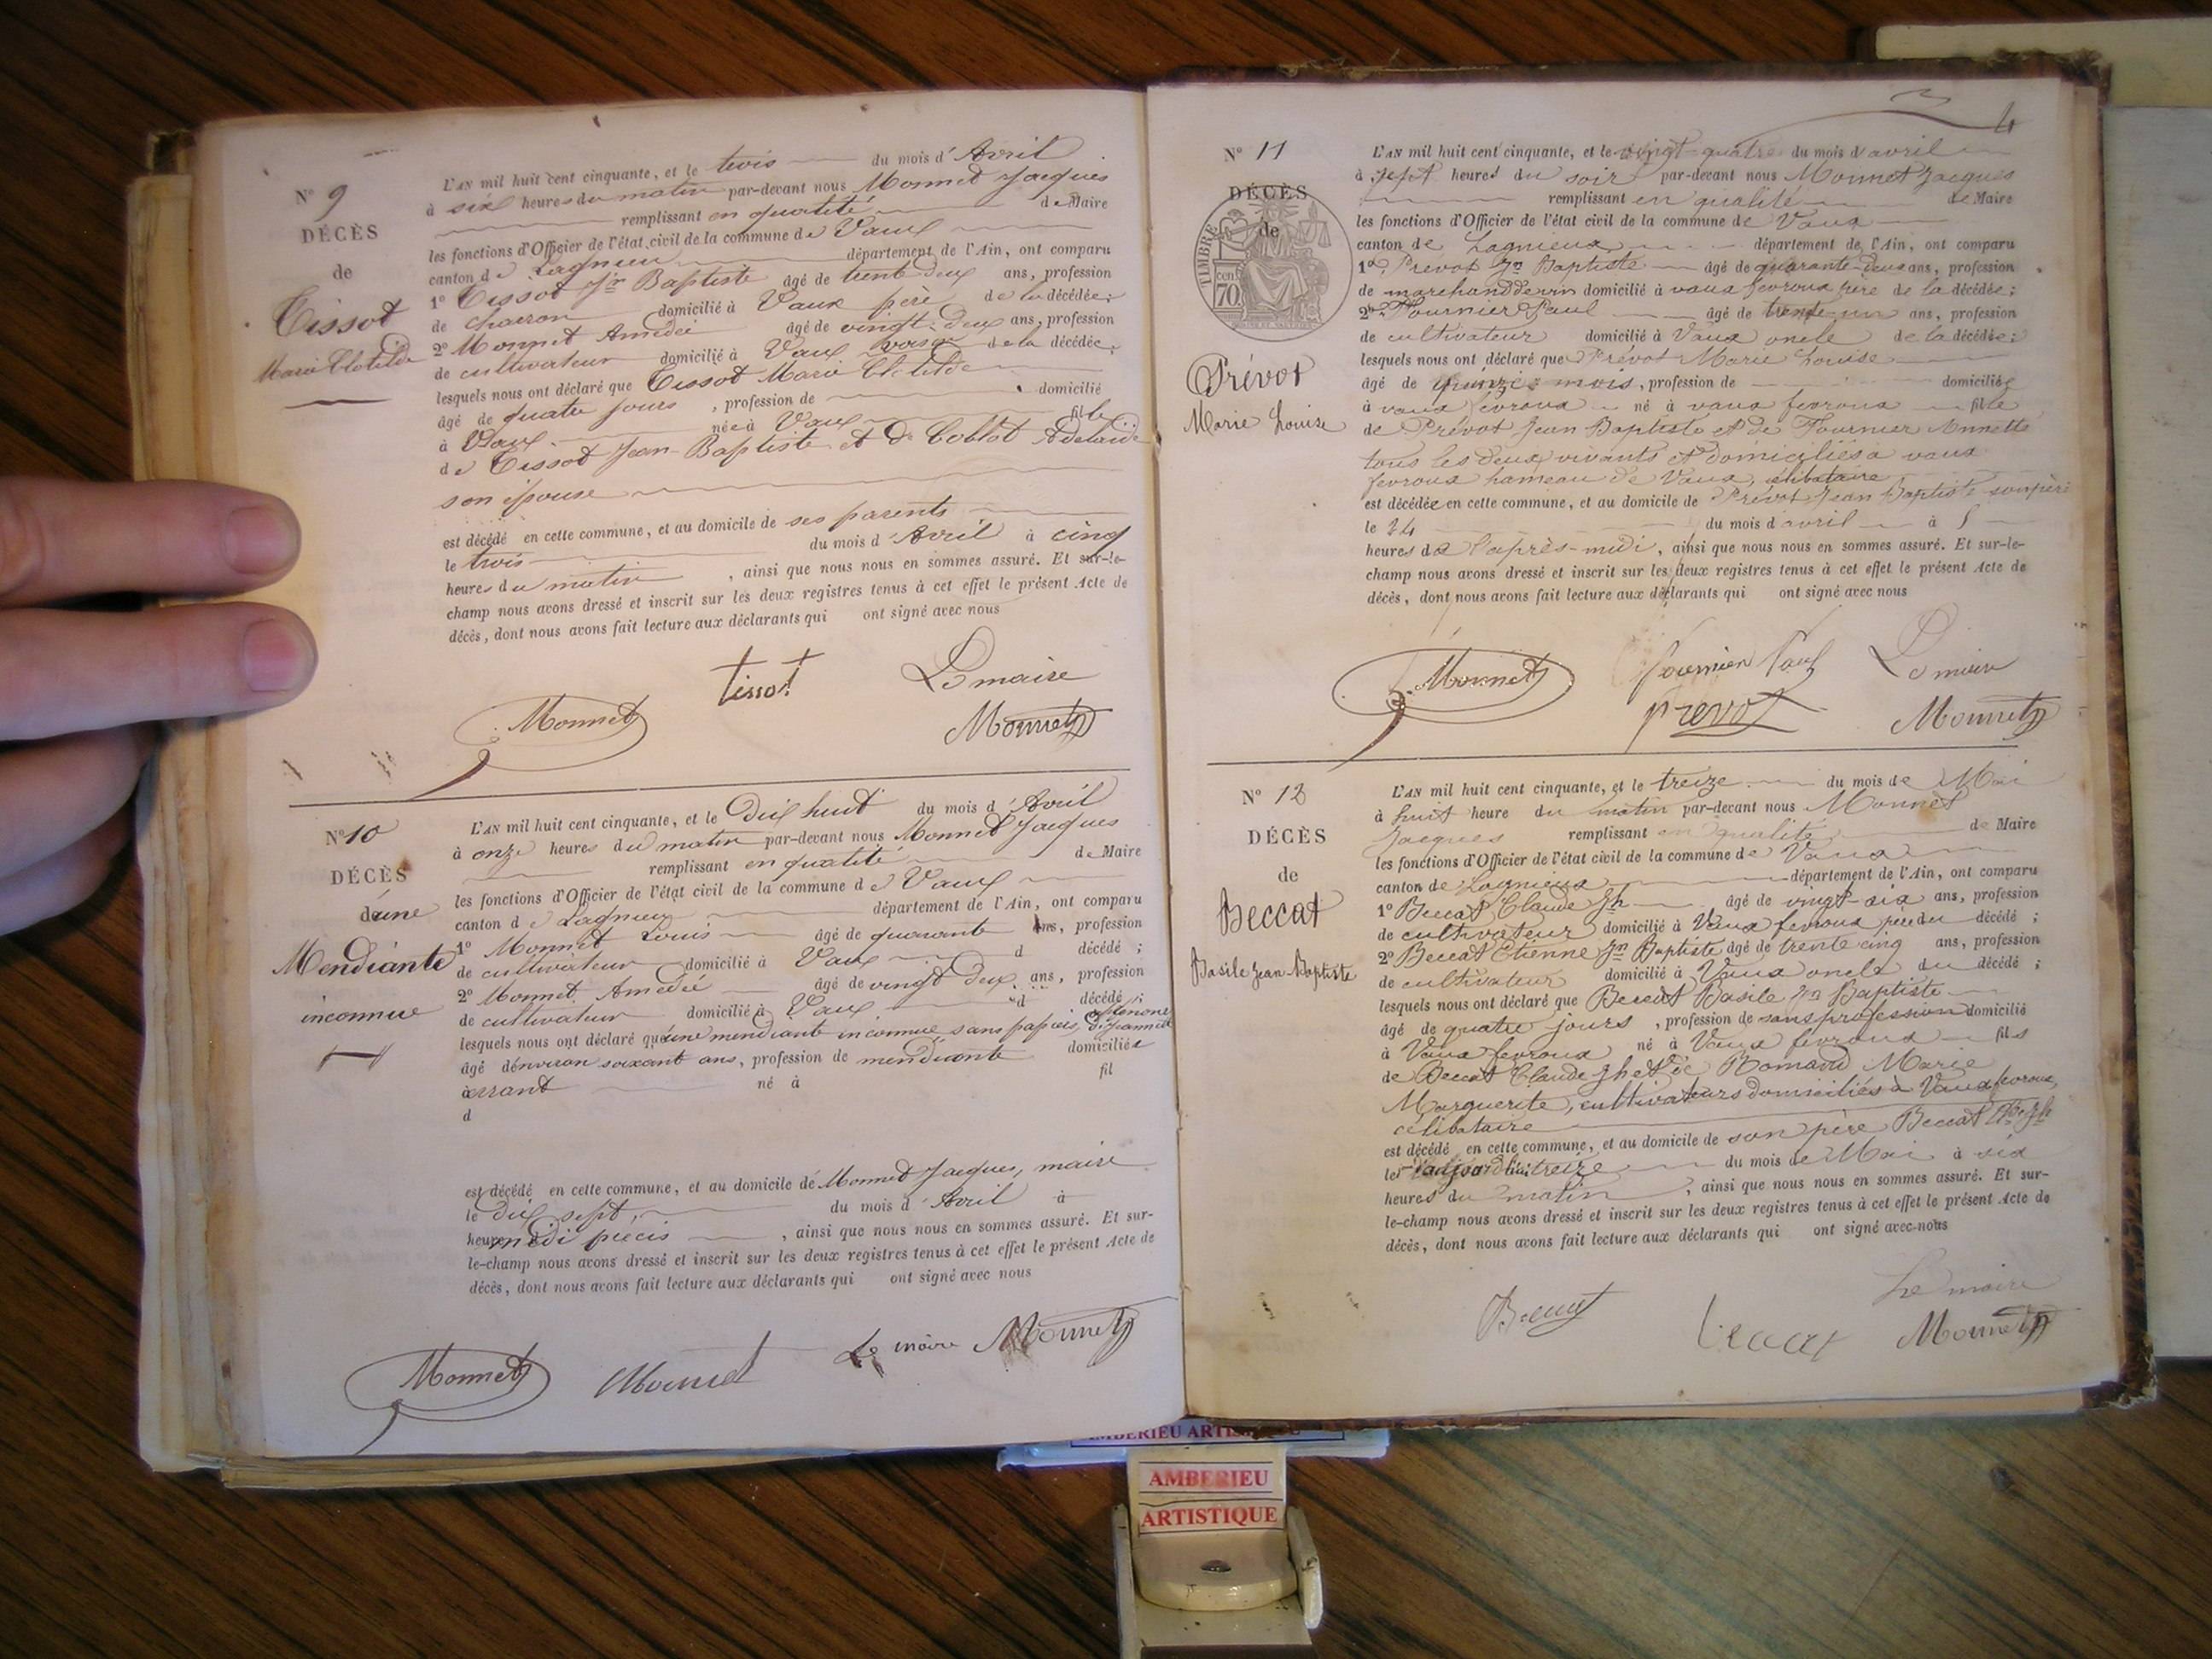 N° 9
DÉCÈS
de
Tissot
Marie Clotilde
L'AN mil huit cent cinquante, et le trois du mois d'Avril
à six heures du matin par-devant nous Monnet Jacques
remplissant en qualité de Maire
les fonctions d'Officier de l'état civil de la commune de Vaux
canton de Lagnieu département de l'Ain, ont comparu
1° Tissot Jn Baptiste âgé de trente deux ans, profession
de charron domicilié à Vaux père de la décédée;
2° Monnet Amédée âgé de vingt-deux ans, profession
de cultivateur domicilié à Vaux voisin de la décédée;
lesquels nous ont déclaré que Tissot Marie Clotilde
âgé de quatre jours, profession de domicilié
à Vaux née à Vaux fille
de Tissot Jean-Baptiste et de Adelaïde
son épouse
est décédé en cette commune, et au domicile de ses parents
le trois du mois d'Avril à cinq
heures du matin, ainsi que nous nous en sommes assuré. Et sur-le-
champ nous avons dressé et inscrit sur les deux registres tenus à cet effet le présent Acte de
décès, dont nous avons fait lecture aux déclarants qui ont signé avec nous
tissot Le maire
Monnet Monnet
N° 10
DÉCÈS
d'une
Mendiante
inconnue
L'AN mil huit cent cinquante, et le Dix huit du mois d'Avril
à onze heures du matin par-devant nous Monnet Jacques
remplissant en qualité de Maire
les fonctions d'Officier de l'état civil de la commune de Vaux
canton de Lagnieu département de l'Ain, ont comparu
1° Monnet Louis âgé de quarante ans, profession
de cultivateur domicilié à Vaux d décédé;
2° Monnet Amédée âgé de vingt deux ans, profession
de cultivateur domicilié à Vaux d décédé;
lesquels nous ont déclaré qu'une mendiante inconnue sans papiers,
âgé d'environ soixant ans, profession de mendiante domiciliée
à errant né à fil
d
est décédé en cette commune, et au domicile de Monnet Jacques, maire
le dix sept, du mois d'Avril à
heures midi précis, ainsi que nous nous en sommes assuré. Et sur-
le-champ nous avons dressé et inscrit sur les deux registres tenus à cet effet le présent Acte de
décès, dont nous avons fait lecture aux déclarants qui ont signé avec nous
Monnet Monnet Le maire Monnet
4
N° 11
DÉCÈS
de
TIMBRE
70
Prévot
Marie Louise
L'AN mil huit cent cinquante, et le vingt-quatre du mois d'avril
à sept heures du soir par-devant nous Monnet Jacques
remplissant en qualité de Maire
les fonctions d'Officier de l'état civil de la commune de Vaux
canton de Lagnieux département de l'Ain, ont comparu
1° Prévot Jn Baptiste âgé de quarante-deux ans, profession
de marchand de vin domicilié à vaux fevroux père de la décédée;
2° Fournier Paul âgé de trente-un ans, profession
de cultivateur domicilié à Vaux oncle de la décédée;
lesquels nous ont déclaré que Prévot Marie Louise
âgé de quinze mois, profession de domiciliée
à vaux fevroux né à vaux fevroux fille
de Prévot Jean Baptiste et de Fournier Annette
tous les deux vivants et domiciliés a vaux
fevroux hameau de Vaux, célibataire
est décédée en cette commune, et au domicile de Prévot Jean Baptiste son père
le 24 du mois d'avril à 5
heures de l'après-midi, ainsi que nous nous en sommes assuré. Et sur-le-
champ nous avons dressé et inscrit sur les deux registres tenus à cet effet le présent Acte de
décès, dont nous avons fait lecture aux déclarants qui ont signé avec nous
Monnet fournier Paul Le maire
prevot Monnet
N° 12
DÉCÈS
de
Beccat
Basile Jean-Baptiste
L'AN mil huit cent cinquante, et le treize du mois de Mai
à huit heure du matin par-devant nous Monnet
Jacques remplissant en qualité de Maire
les fonctions d'Officier de l'état civil de la commune de Vaux
canton de Lagnieux département de l'Ain, ont comparu
1° Beccat Claude Jh âgé de vingt-six ans, profession
de cultivateur domicilié à Vaux fevroux père du décédé;
2° Beccat Etienne Jn Baptiste âgé de trente cinq ans, profession
de cultivateur domicilié à Vaux oncle du décédé;
lesquels nous ont déclaré que Beccat Basile Jn Baptiste
âgé de quatre jours, profession de sans profession domicilié
à Vaux fevroux né à Vaux fevroux fils
de Beccat Claude Jh et de Marie
Marguerite, cultivateurs domiciliés à Vaux fevroux,
célibataire
est décédé en cette commune, et au domicile de son père Beccat Cde Jh
le treize du mois de Mai à six
heures du matin, ainsi que nous nous en sommes assuré. Et sur-
le-champ nous avons dressé et inscrit sur les deux registres tenus à cet effet le présent Acte de
décès, dont nous avons fait lecture aux déclarants qui ont signé avec nous
Le maire
Beccat beccat Monnet
AMBERIEU ARTISTIQUE
AMBERIEU
ARTISTIQUE